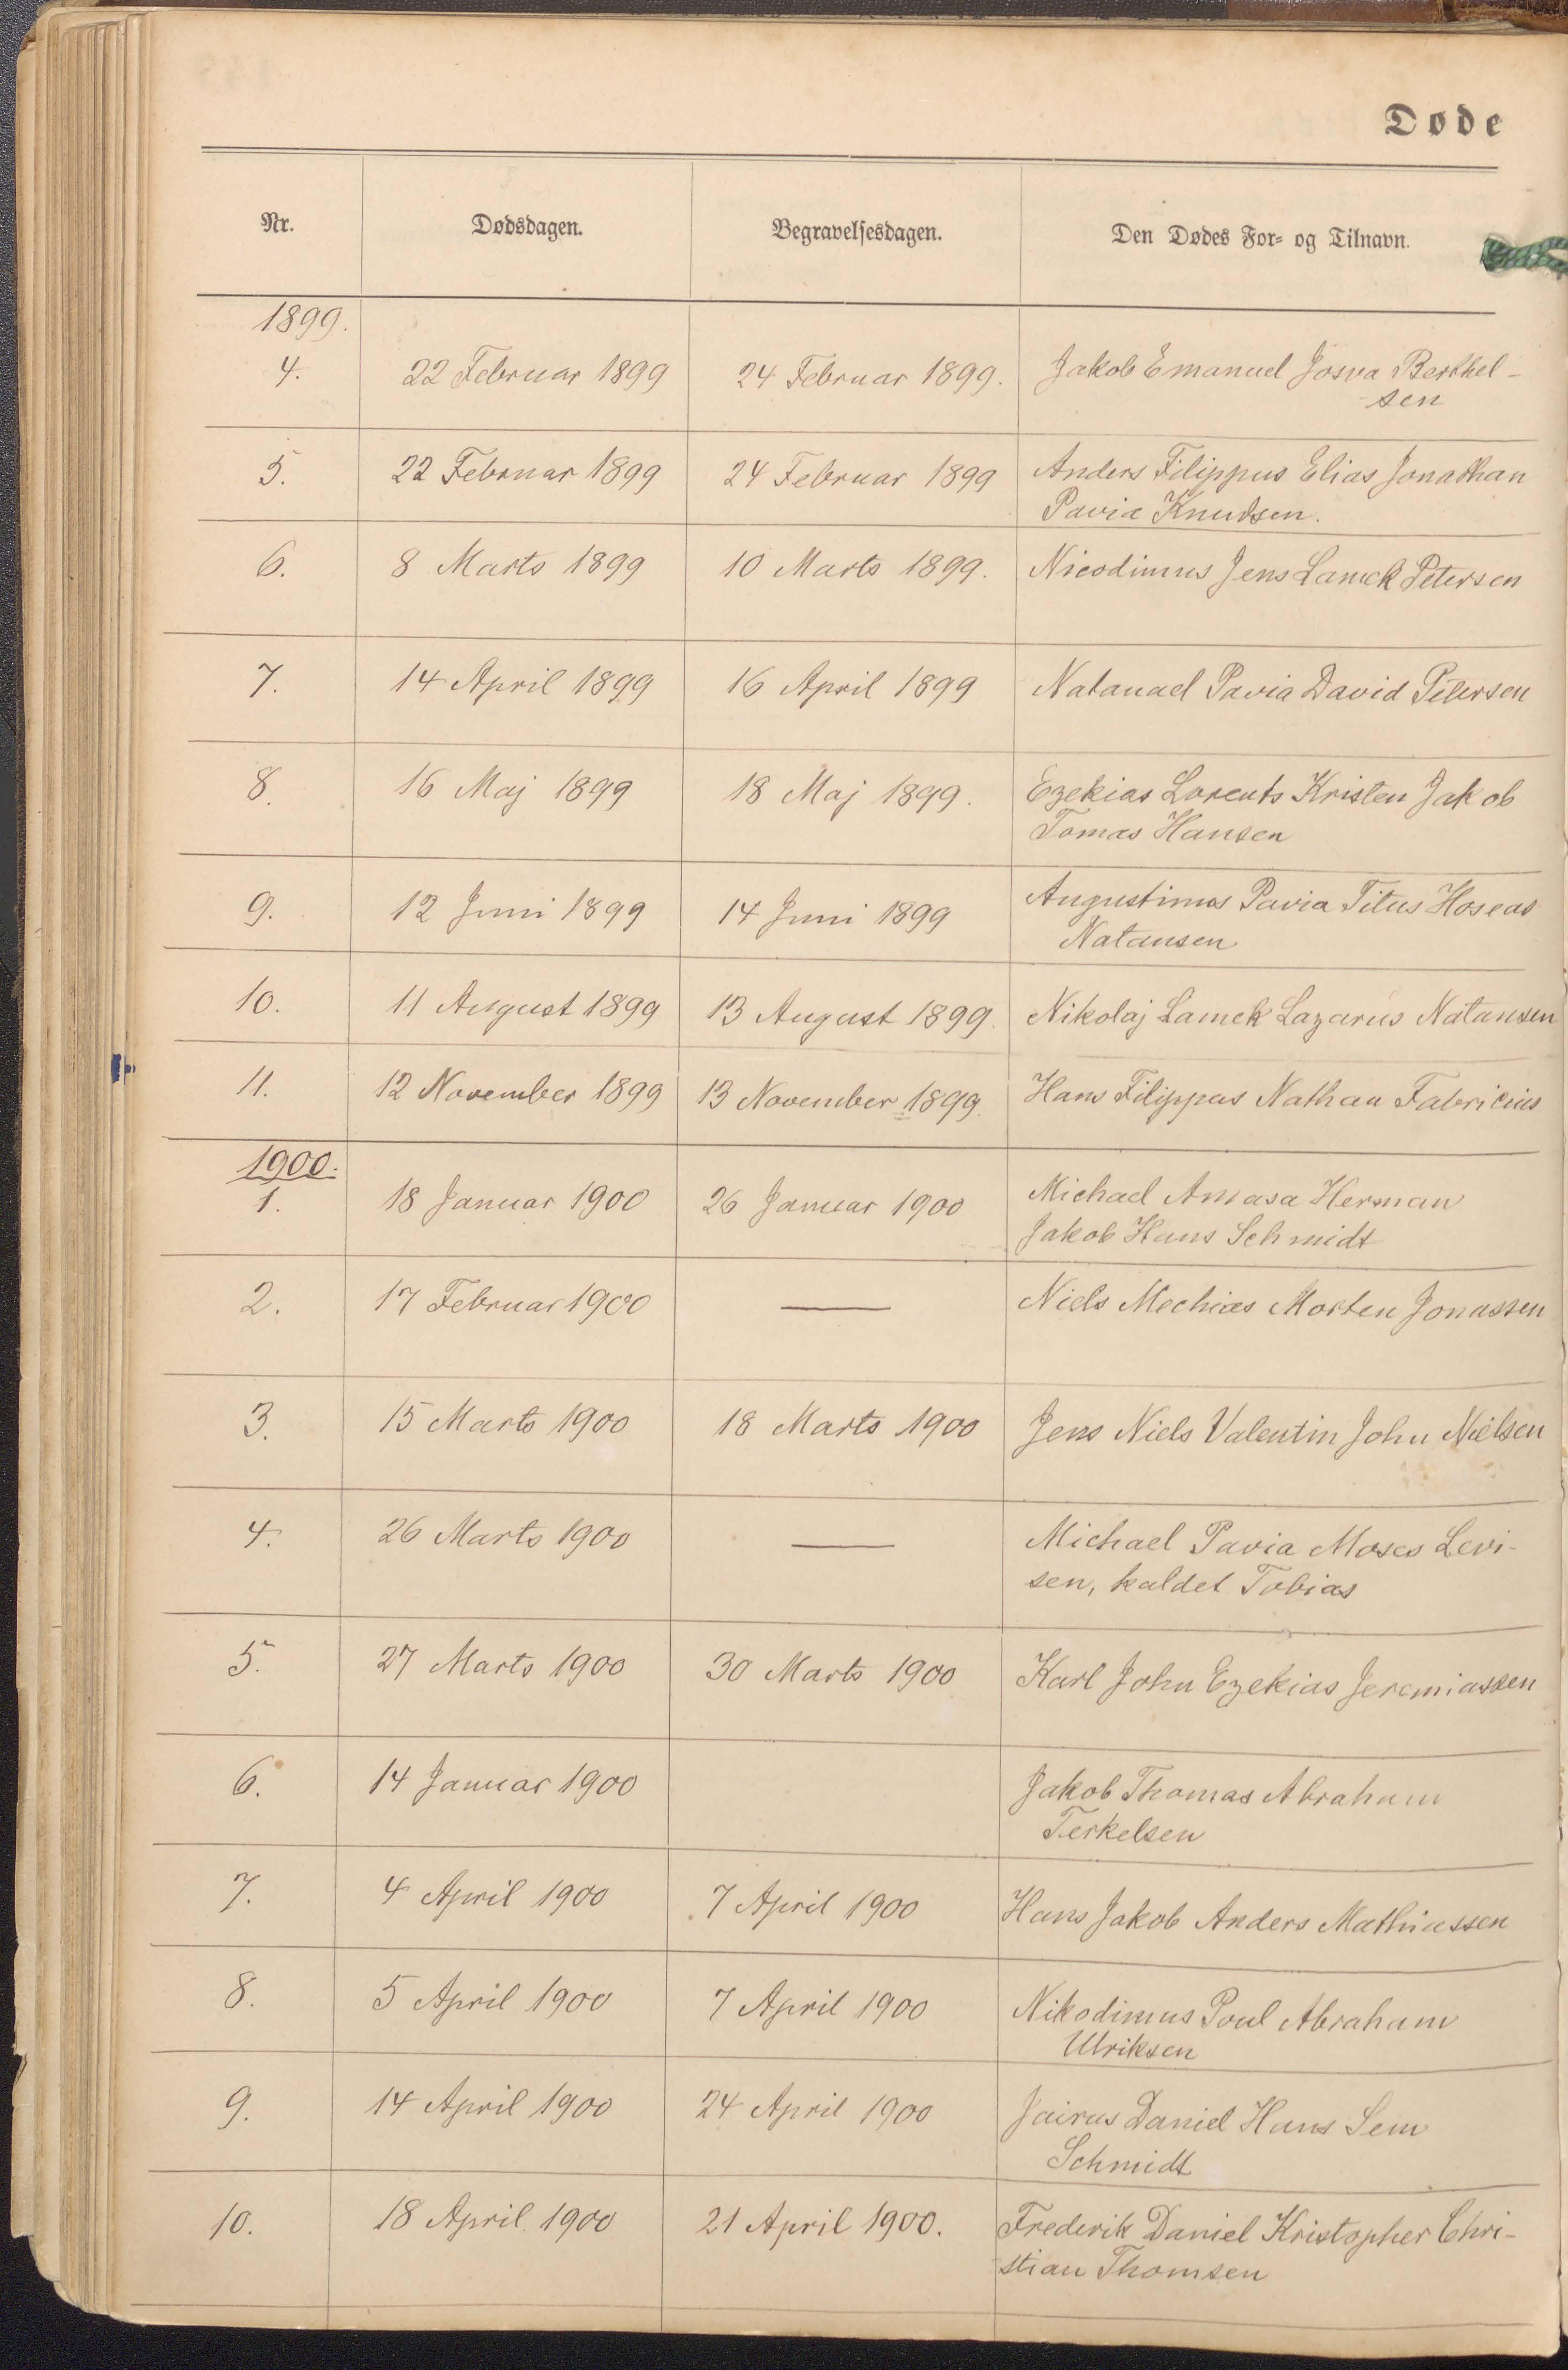 Døde
Nr. Dødsdagen. Begravelsesdagen. Den Dødes For- og Tilnavn.
1899.
4. 22 Februar 1899 24 Februar 1899. Jakob Emanuel Josva Berthel-
sen
5. 22 Februar 1899 24 Februar 1899 Anders Filippus Elias Jonathan
Pavia Knudsen.
6. 8 Marts 1899 10 Marts 1899. Nicodimus Jens Lamek Petersen
7. 14 April 1899 16 April 1899 Natanael Pavia David Petersen
8. 16 Maj 1899 18 Maj 1899. Ezekias Lorents Kristen Jakob
Tomas Hansen
9. 12 Juni 1899 14 Juni 1899 Augustinus Pavia Titus Hoseas
Natansen
10. 11 August 1899 13 August 1899. Nikolaj Lamek Lazarus Natansen
11. 12 November 1899 13 November 1899. Hans Filippus Nathan Fabricius
1900.
1. 18 Januar 1900 26 Januar 1900 Michael Amasa Herman
Jakob Hans Schmidt
2. 17 Februar 1900 — Niels Mechias Morten Jonassen
3. 15 Marts 1900 18 Marts 1900 Jens Niels Valentin John Nielsen
4. 26 Marts 1900 — Michael Pavia Moses Levi-
sen, kaldet Tobias
5. 27 Marts 1900 30 Marts 1900 Karl John Ezekias Jeremiassen
6. 14 Januar 1900 Jakob Thomas Abraham
Terkelsen
7. 4 April 1900 7 April 1900 Hans Jakob Anders Mathiassen
8. 5 April 1900 7 April 1900 Nikodimus Poul Abraham
Ulriksen
9. 14 April 1900 24 April 1900 Jairus Daniel Hans Sem
Schmidt
10. 18 April 1900 21 April 1900. Frederik Daniel Kristopher Chri-
stian Thomsen